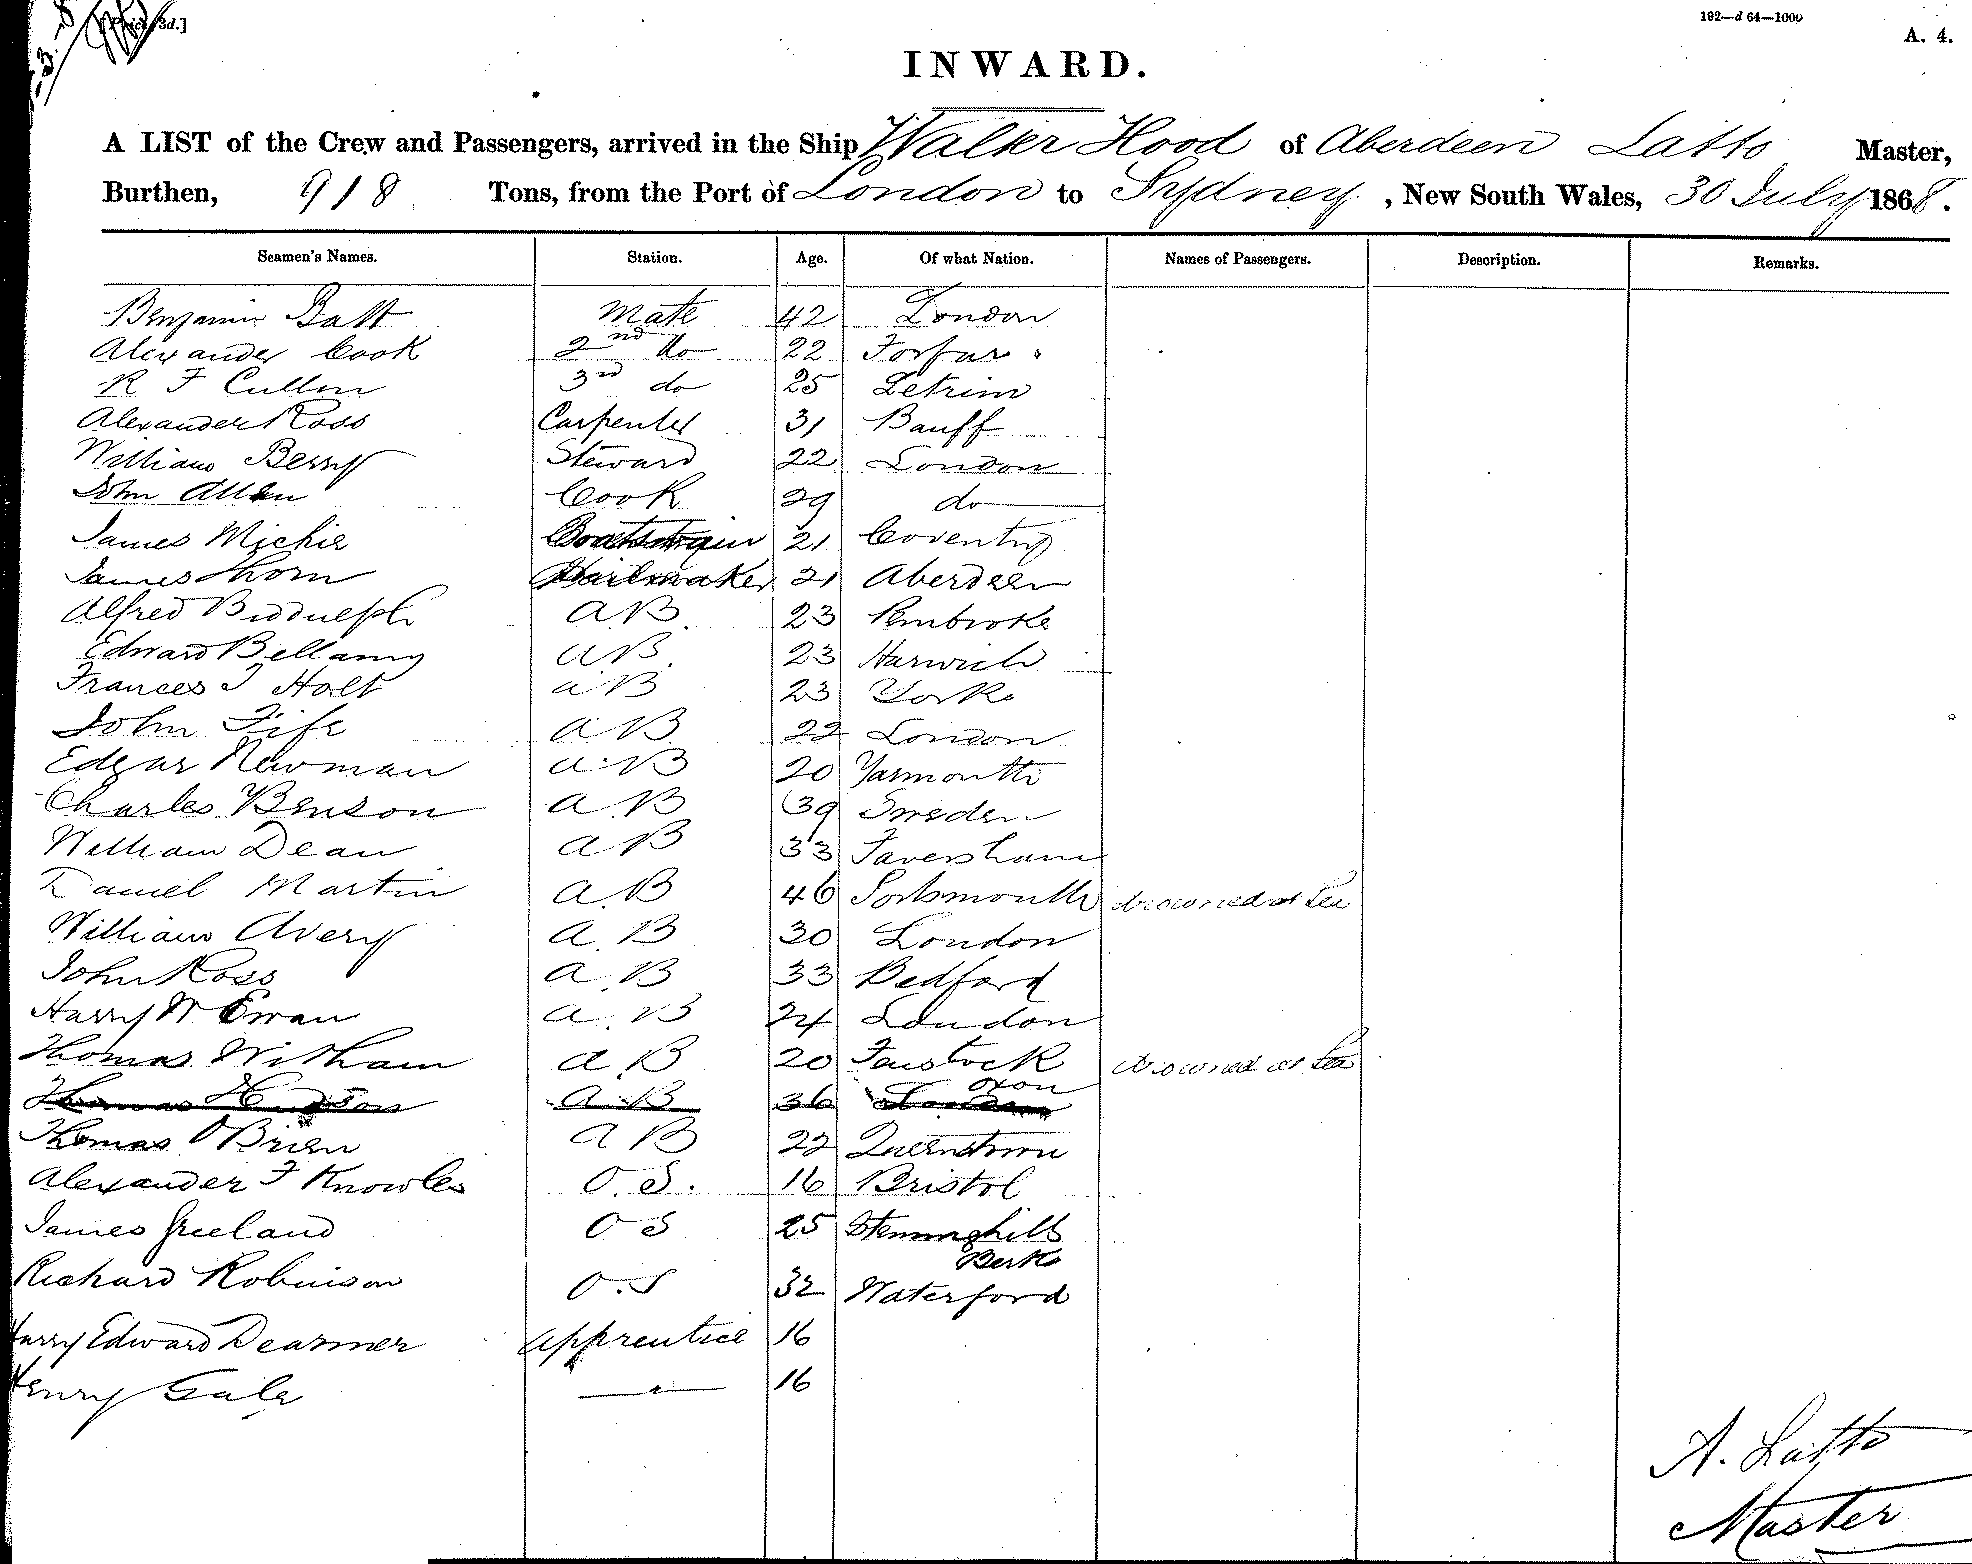 [Price 3d.]
192—d 64—1000
A. 4.
INWARD.
A LIST of the Crew and Passengers, arrived in the Ship Walter Hood of Aberdeen Latto Master,
Burthen, 918 Tons, from the Port of London to Sydney, New South Wales, 30 July 1868.
Seamen's Names. Station. Age. Of what Nation. Names of Passengers. Description. Remarks.
Benjamin Batt Mate 42 London
Alexander Cook 2nd do 22 Forfar
R F Cullen 3rd do 25 Letrim
Alexander Ross Carpenter 31 Banff
William Berry Steward 22 London
John Allen Cook 29 do
James Michie Boatswain 21 Coventry
James Thom Sailmaker 21 Aberdeen
Alfred Biddulph AB 23 Pembroke
Edward Bellamy AB 23 Harwich
Frances J Holt AB 23 Yorke
John Fife AB 22 London
Edgar Newman AB 20 Yarmouth
Charles Benson AB 39 Sweden
William Dean AB 33 Faversham
Daniel Martin A.B 46 Portsmouth drowned at Sea
William Avery A.B 30 London
John Ross A.B 33 Bedford
Harry W Ewan A.B 24 London
Thomas Witham A.B 20 drowned at Sea
Oxon
Thomas Hudson A.B 36 London
Thomas OBrien AB 22 Queenstown
Alexander F Knowles O.S. 16 Bristol
James OS 25
Berks
Richard Robinson O.S 32 Waterford
Harry Edward Dearmer Apprentice 16
Henry Gale " 16
A. Latto
Master